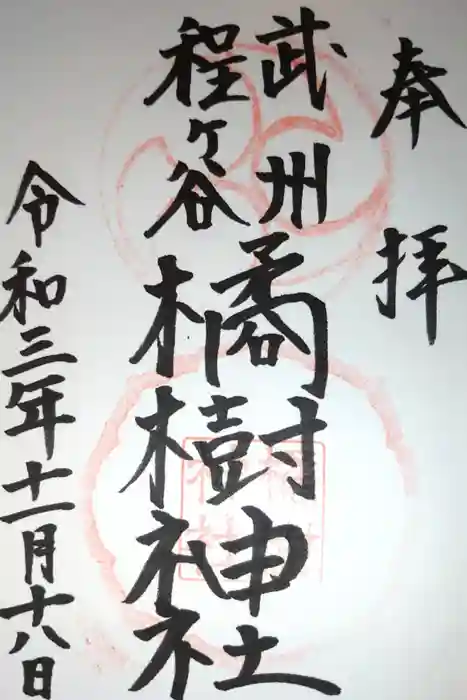 奉拝
武州
程ヶ谷
橘樹神社
令和三年十一月十八日
橘樹
神社